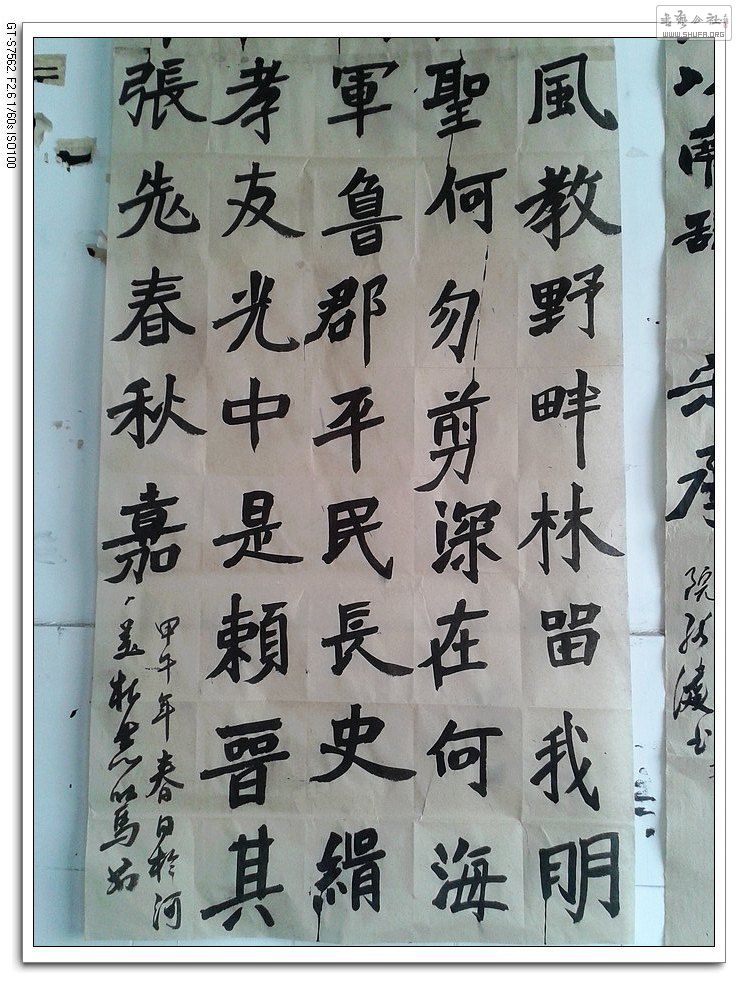 書藝公社
WWW.SHUFA.ORG
GT-S7562 F2.6 1/60s ISO100
風教野畔林留我明
聖何勿剪深在何海
軍魯郡平民長史緝
孝友光中是賴晉其
張春秋嘉
甲午年春日於河